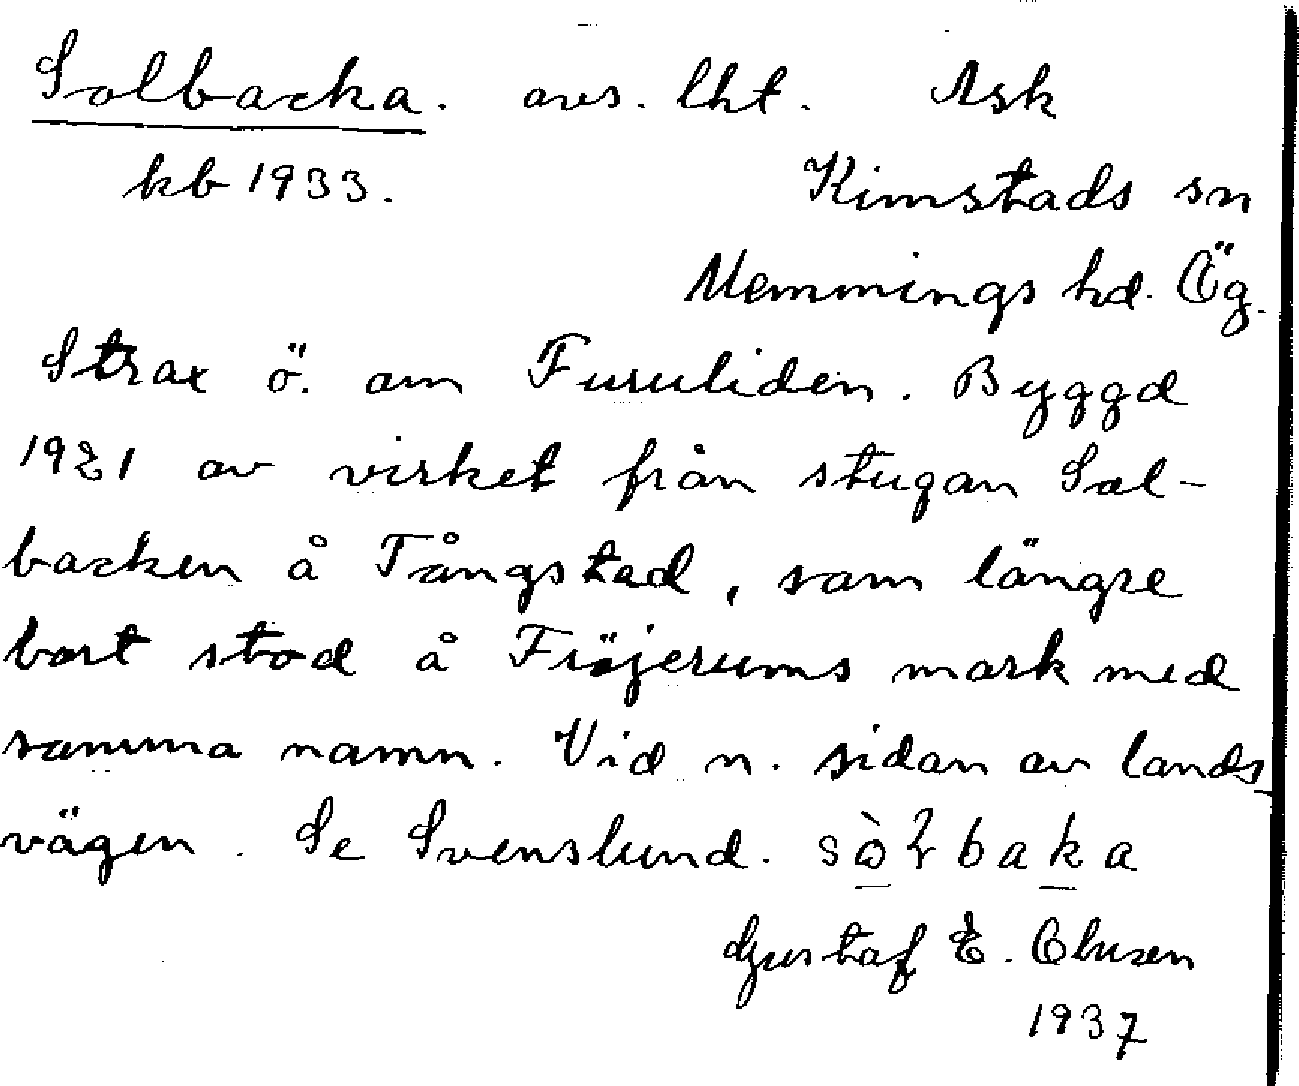 Solbacka. avs. lht. Ask
kb 1933. Kimstads sn
Memmings hd. Ög.
Strax ö. om Furuliden. Byggd
1921 av virket från stugan Sol-
backen å Tångstad, som längre
bort stod å Fröjerums mark med
samma namn. Vid n. sidan av lands
vägen. Se Svenslund.
Gustaf E. Olusen
1937